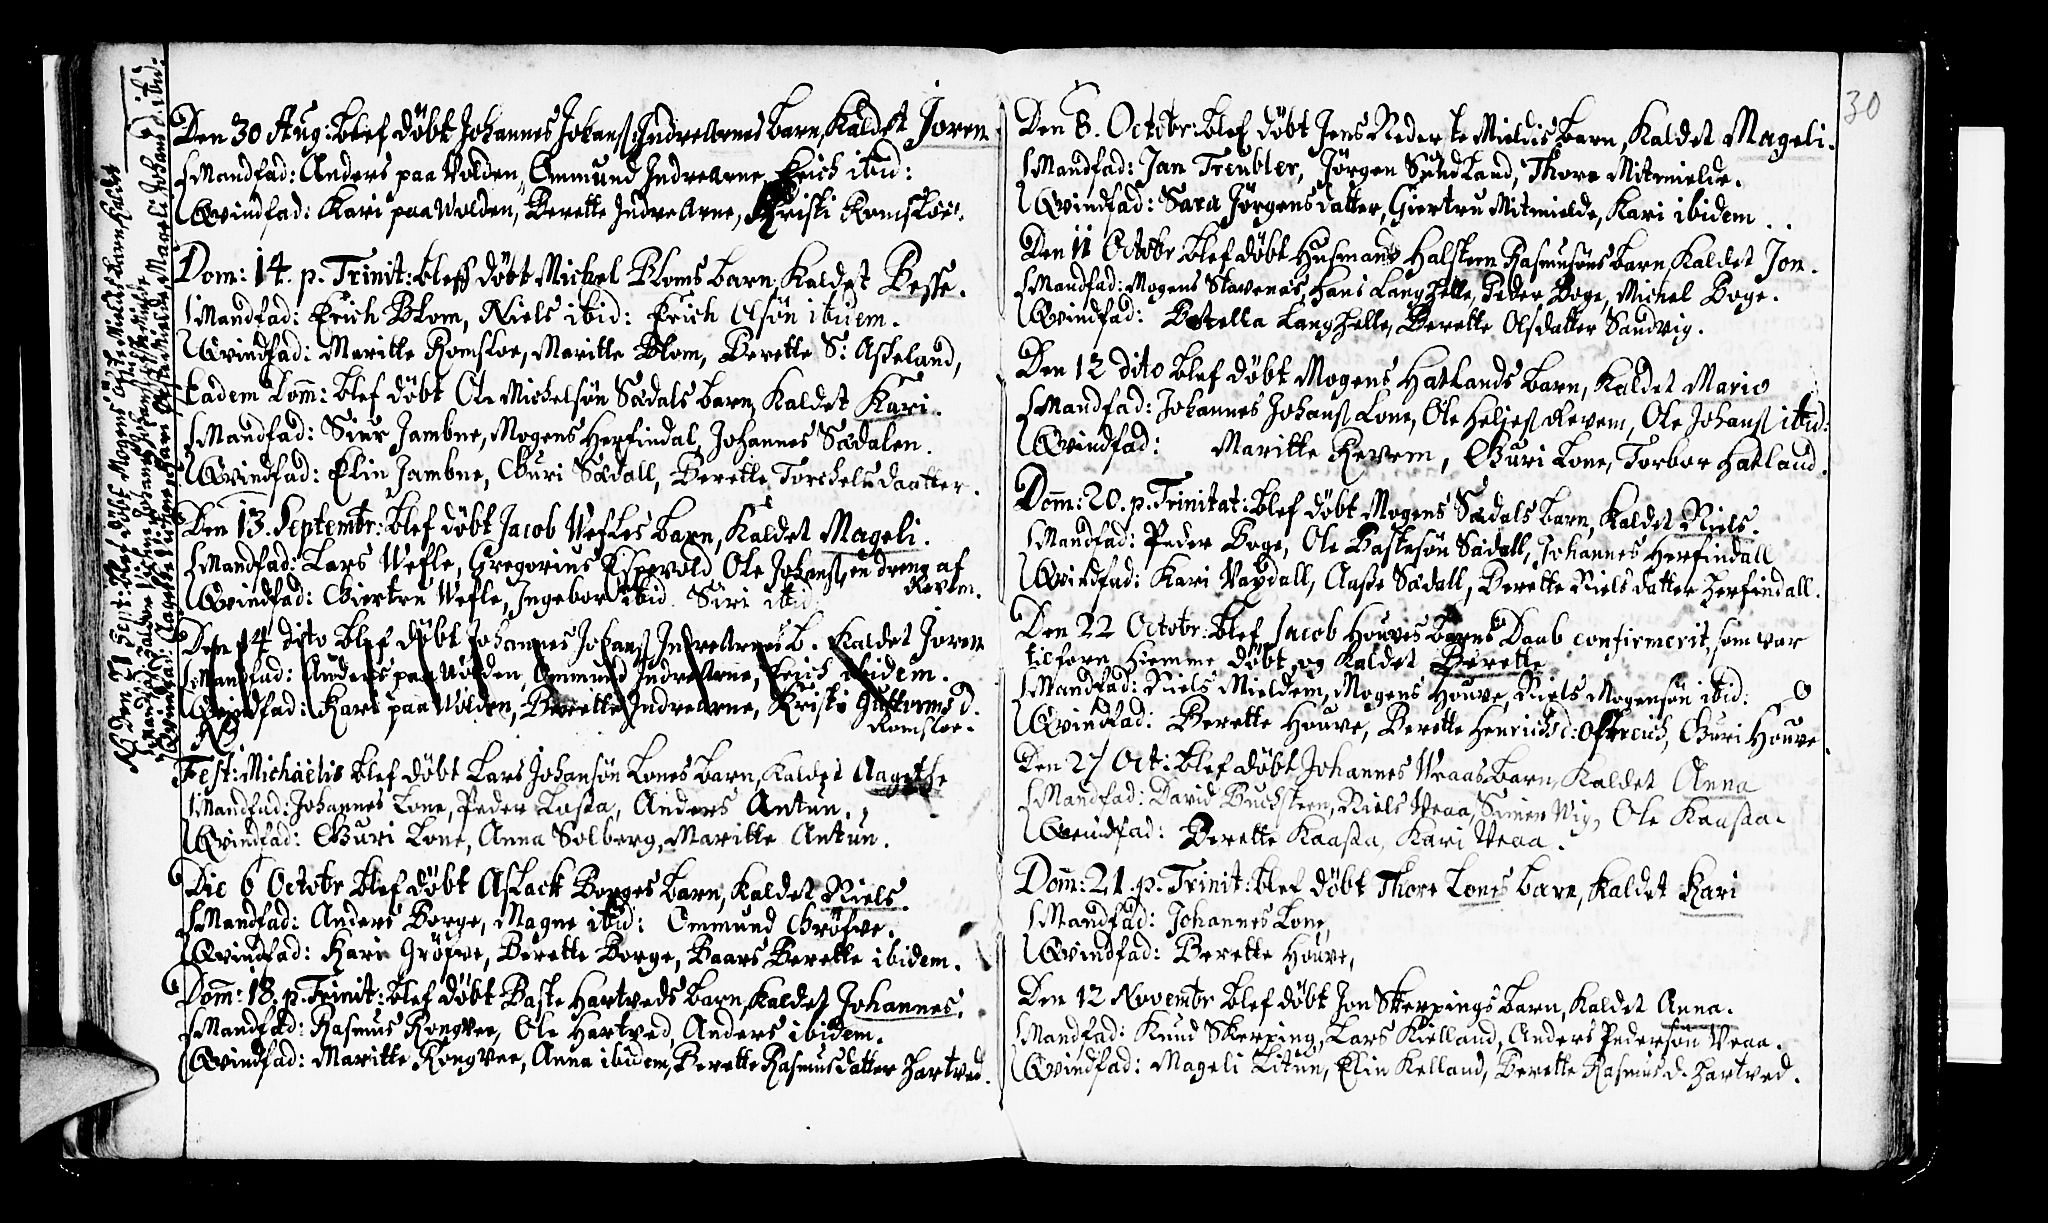 Den 30 Aug: blef döbt Johannes Johanß: Indre Arnes barn, Kaldet Joren
Mandfad: Anders paa Volden, Ommund Indre Arne, Erich ibid:
Qvindfad: Kari paa Volden, Berette Indre Arne, Kristi Romsloe.
Dom: 14. p. Trinit: bleff döbt Michel Bloms barn, Kaldet Besse.
Mandfad: Erich Blom, Niels ibid: Erich Olsön ibidem.
Qvindfad: Maritte Romsloe, Maritte Blom, Berette S: Askeland,
Eadem Dom: blef döbt Ole Michelsön Sædals barn, Kaldet Kari.
Mandfad: Siur Jambne, Mogens Herfindal, Johannes Sædalen.
Qvindfad: Elin Jambne, Guri Sædall, Berette Torchelsdaatter.
Den 13. Septembr: blef döbt Jacob Wefles barn, Kaldet Mageli.
Mandfad: Lars Wefle, Gregorius Espevold Ole Johanß, en dreng af
Revem.
Qvindfad: Giertru Wefle, Ingebor ibid Siri ibid.
Den 14 dito blef döbt Johannes Johanß Indre Arnes b. Kaldet Joren
Mandfad: Anders paa Volden, Ommund Indre Arne, Erich ibidem.
Qvindfad: Kari paa Volden, Berette Indre Arne, Kristi Guttorms d.
Romsloe.
NB
Fest: Michaelis blef döbt Lars Johansön Lones barn, Kaldet Aagethe
Mandfad: Johannes Lone, Peder Loßa, Anders Antun.
Qvindfad: Guri Lone, Anna Solberg, Maritte Antun.
Die 6 Octobr blef döbt Aslack Borges barn, Kaldet Niels.
Mandfad: Anders Borge, Magne ibid: Ommund Gröfve.
Qvindfad: Kari Gröfve, Berette Borge, Baars Berette ibidem.
Dom: 18. p. Trinit: blef döbt Baste Hartveds barn, Kaldet Johannes.
Mandfad: Rasmus Rongvee, Ole Hartved, Anders ibidem.
Qvindfad: Maritte Rongvee, Anna ibidem, Berette Rasmusdatter Hartved.
Den 21 Sept: blef döbt Mogens barn, Kaldet
30
Den 8. Octobr: blef döbt Jens Nederste Mieldis barn, Kaldet Mageli.
Mandfad: Jan Treubler, Jörgen Sundland, Thore Mitmielde.
Qvindfad: Sara Jörgensdatter, Giertru Mitmielde, Kari ibidem.
Den 11 Octobr blef döbt Husmand Halsteen Rasmusöns barn, Kaldet Jon.
Mandfad: Mogens Stavenes, Hans Langhelle, Peder Boge, Michel Boge.
Qvindfad: Botella Langhelle, Berette Olsdatter Sandvig.
Den 12 dito blef döbt Mogens Hatlands barn, Kaldet Mario
Mandfad: Johannes Johanß Lone, Ole Heließ Revem, Ole Johanß ibid:
Qvindfad: Maritte Revem, Guri Lone, Torbor Hatland.
Dom: 20. p. Trinitat: blef döbt Mogens Sædals barn, Kaldet Niels.
Mandfad: Peder Boge, Ole Bastesön Sædall, Johannes Herfindall
Qvindfad: Kari Vaxdall, Aaße Sædall, Berette Nielsdatter Herfindall.
Den 22 Octobr: blef Jacob Houves barns Daab confirmerit, som var
tilforn hiemme döbt og Kaldet Berette
Mandfad: Niels Mieldem, Mogens Houve, Niels Mogensön ibid:
Qvindfad: Berette Houve, Berette Henrichs d: Ostreich, Guri Houve.
Den 27 Oct: blef döbt Johannes Veaas barn, Kaldet Anna
Mandfad: David Buchsteen, Niels Veaa, Simen Vig, Ole Kaasaa.
Qvindfad: Berette Kaasaa, Kari Veaa.
Dom: 21. p. Trinit: blef döbt Thore Lones barn, Kaldet Kari
Mandfad: Johannes Lone,
Qvindfad: Berette Houve,
Den 12 Novembr blef döbt Jon Skerpings barn, Kaldet Anna.
Mandfad: Knud Skerping, Lars Kielland, Anders Pedersön Veaa.
Qvindfad: Mageli Litun, Elin Kelland, Berette Rasmus d. Hartved.